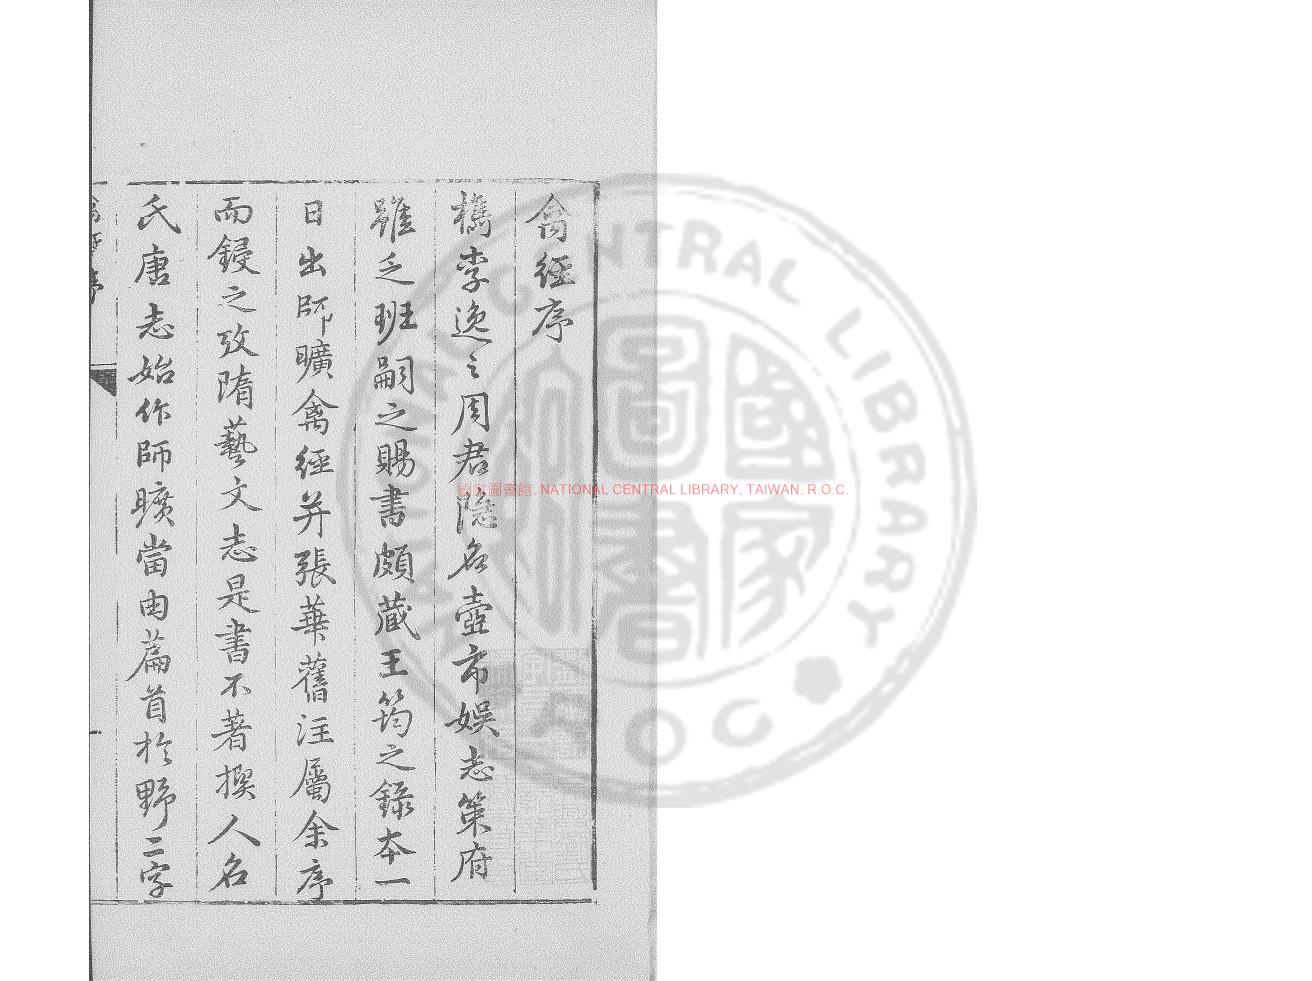 禽經序
檇李逸之周君隱名壺市娛志策府
雖乏班嗣之賜書頗藏王筠之錄本一
日出師曠禽經并張華舊注屬余序
而鋟之攷隋藝文志是書不著撰人名
氏唐志始作師曠當由篇首於野二字
國家圖書館, NATIONAL CENTRAL LIBRARY, TAIWAN, R.O.C.
NATIONAL CENTRAL LIBRARY
R.O.C.
國家圖書